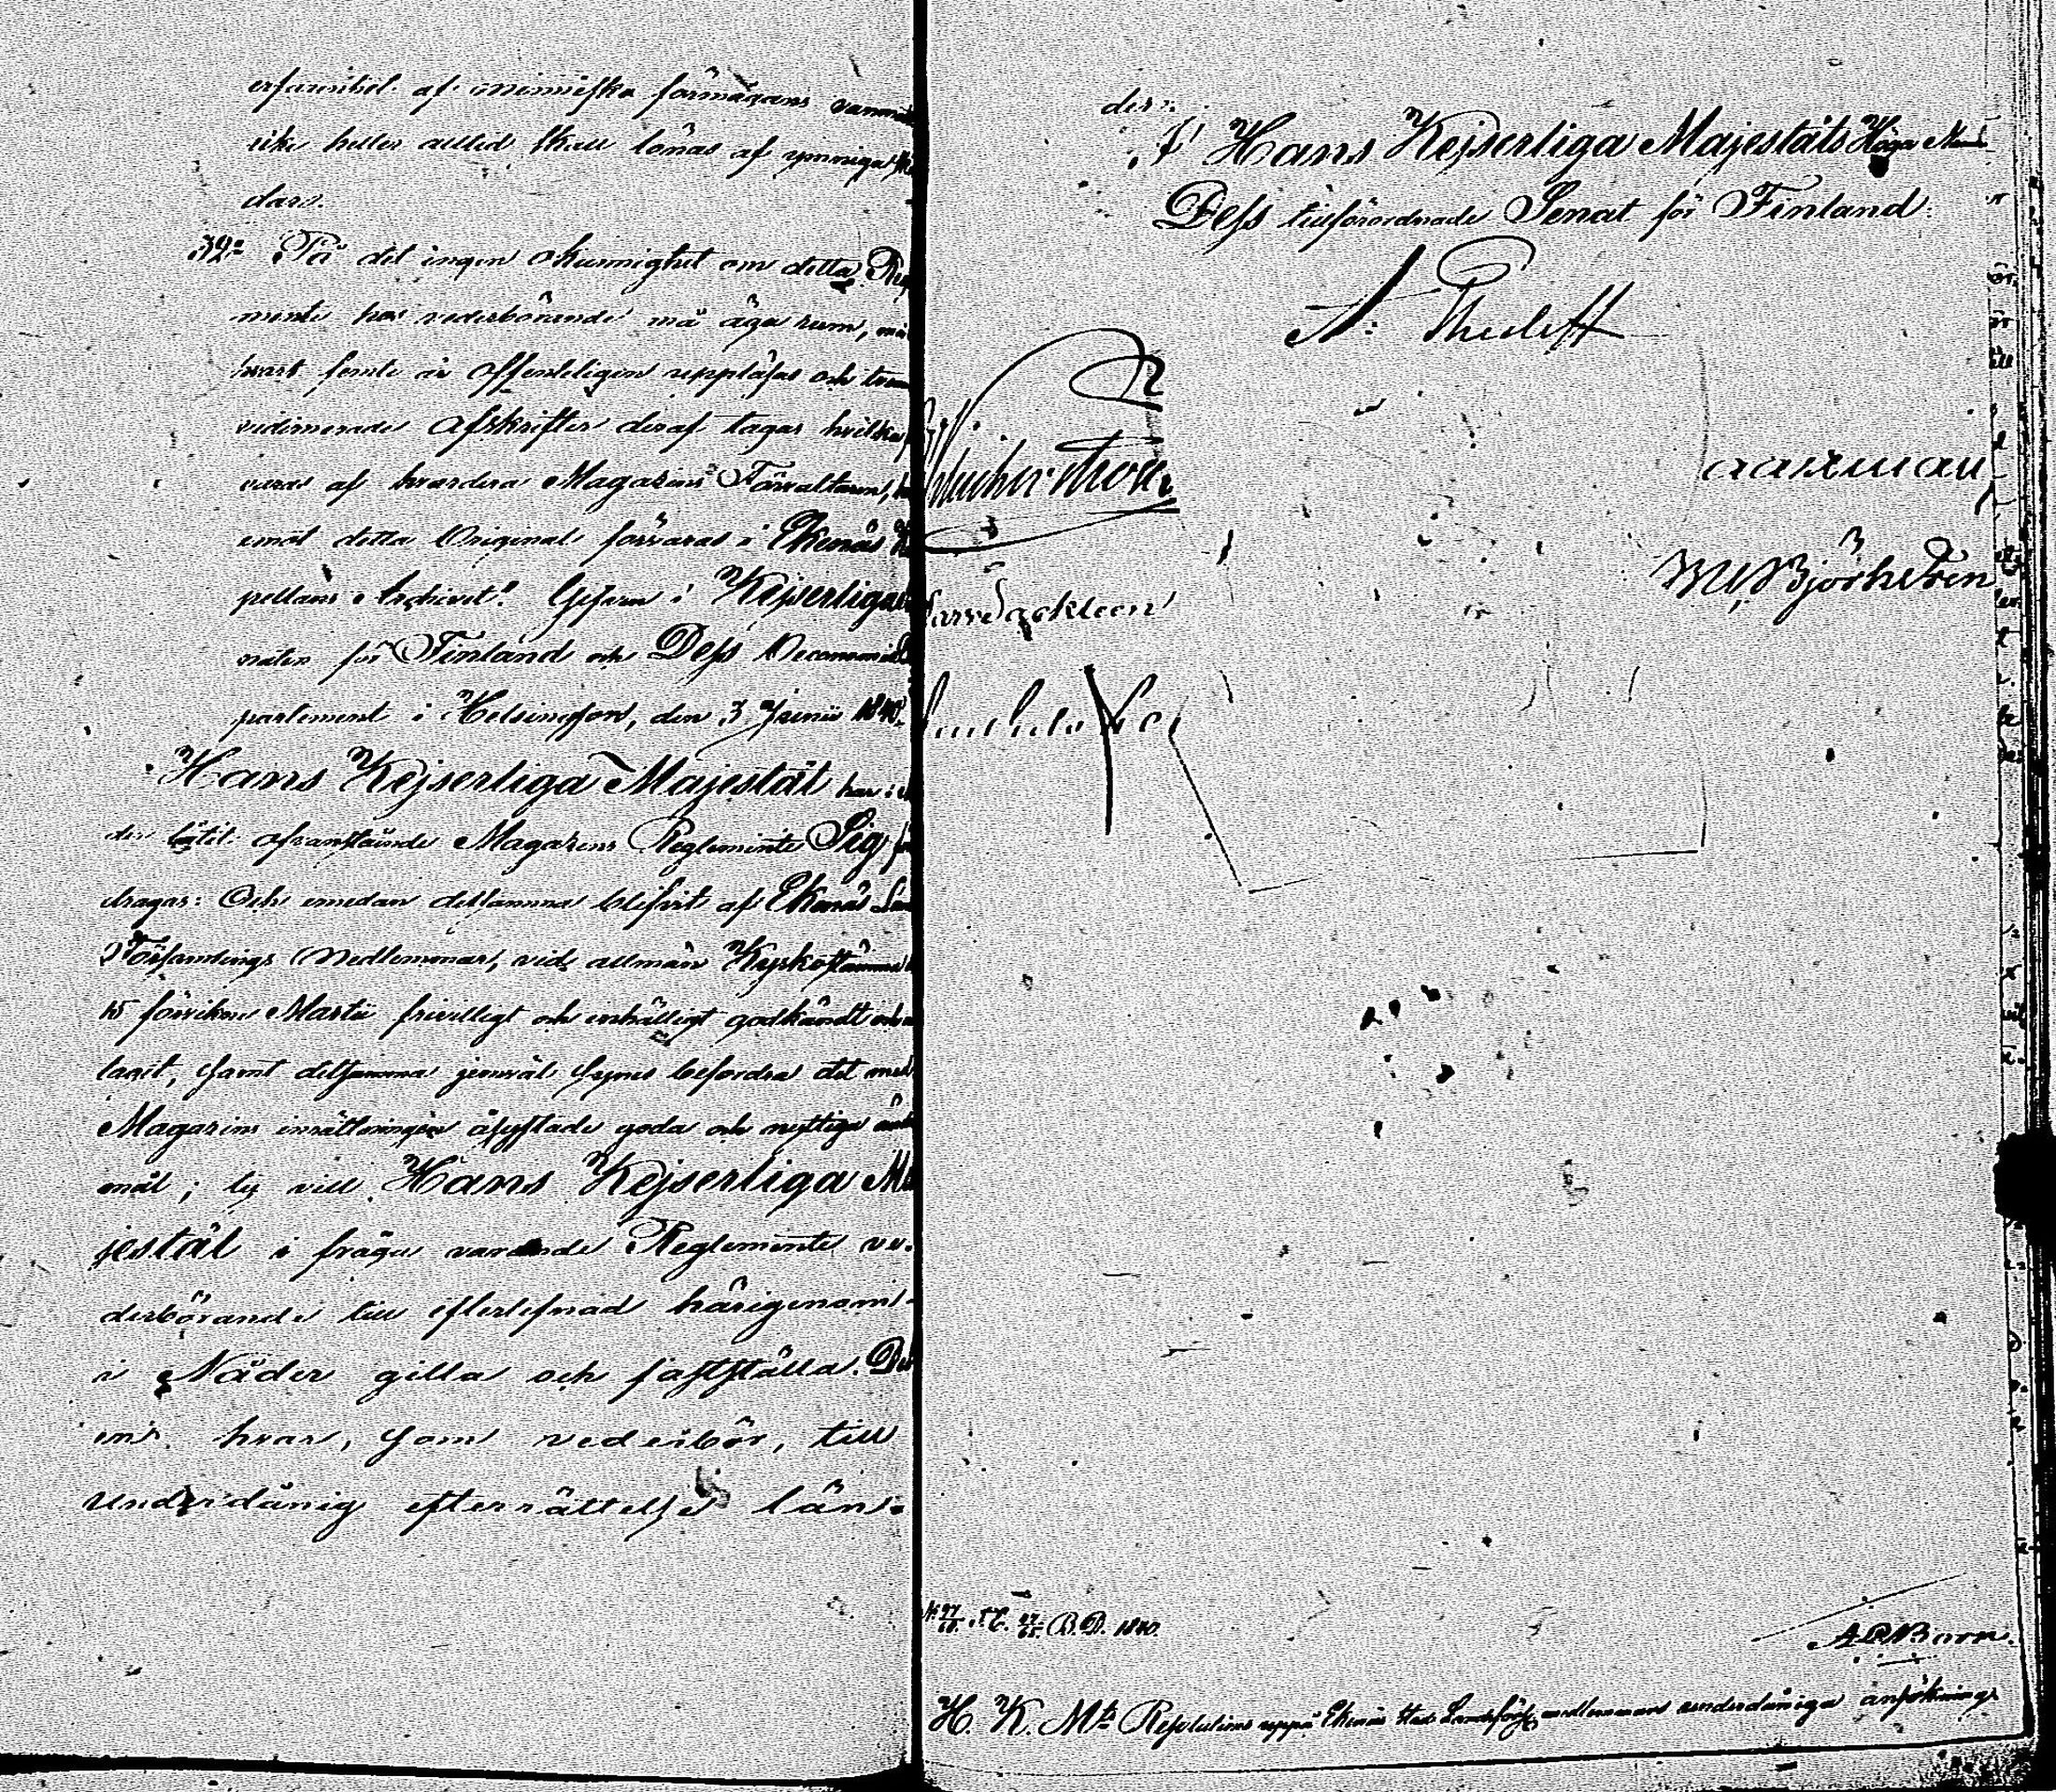 erfarenhet af menniska förmågans
icke heller alltid skall lönas af ymniga
dar.
39:o På det ingen okunnighet om detta Reg
mente hos vederbörande må äga rum, må
hvart femte år offenteligen uppläsas och
vidimerade Afskrifter deraf tagas hvilka
varas af hvardera Magazins Förvaltaren,
emot detta Original förvaras i Ekenäs
pellans Archivet. Gifven i Kejserliga
naten för Finland och Dess Oeconomie
partement i Helsingfors, den 3 Junii 1840.
Hans Kejserliga Majestät har i
der låtit ofvanstående Magazins Reglemente Sig
dragas: Och emedan detsamma blifvit af Ekenäs
Församlings Medlemmar, vid allmän Kyrkostämma
15 förvikne Martii frivilligt och enhälligt godkändt och
tagit, samt detsamma jemväl synes befordra det med
Magazins inrättningen åsyftade goda och nyttiga
mål; ty vill Hans Kejserliga Ma
jestät i fråga varande Reglemente ve-
derbörande till efterlefnad härigenom
i Nåder gilla och fastställa. Det
en hvar, som vederbör, till
underdånig efterrättelse län-
der.
I Hans Kejserliga Majestäts Höga
Dess tillförordnade Senat för Finland:
W. Björkstén
B.D. 1840.
H. K. Mts Resolution uppå Ekenäs Stads Landsförs. medlemmars underdåniga ansöknings